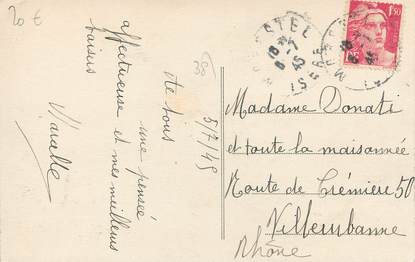 20 €
38
5/7/45
de tous
une pensée
affectueuse et mes meilleurs
baisers
MORESTEL
18 H
6-7
45
ISERE
1F50
Madame Donati
et toute la maisonnée
Route de Crémieu 50
Villeurbanne
Rhône